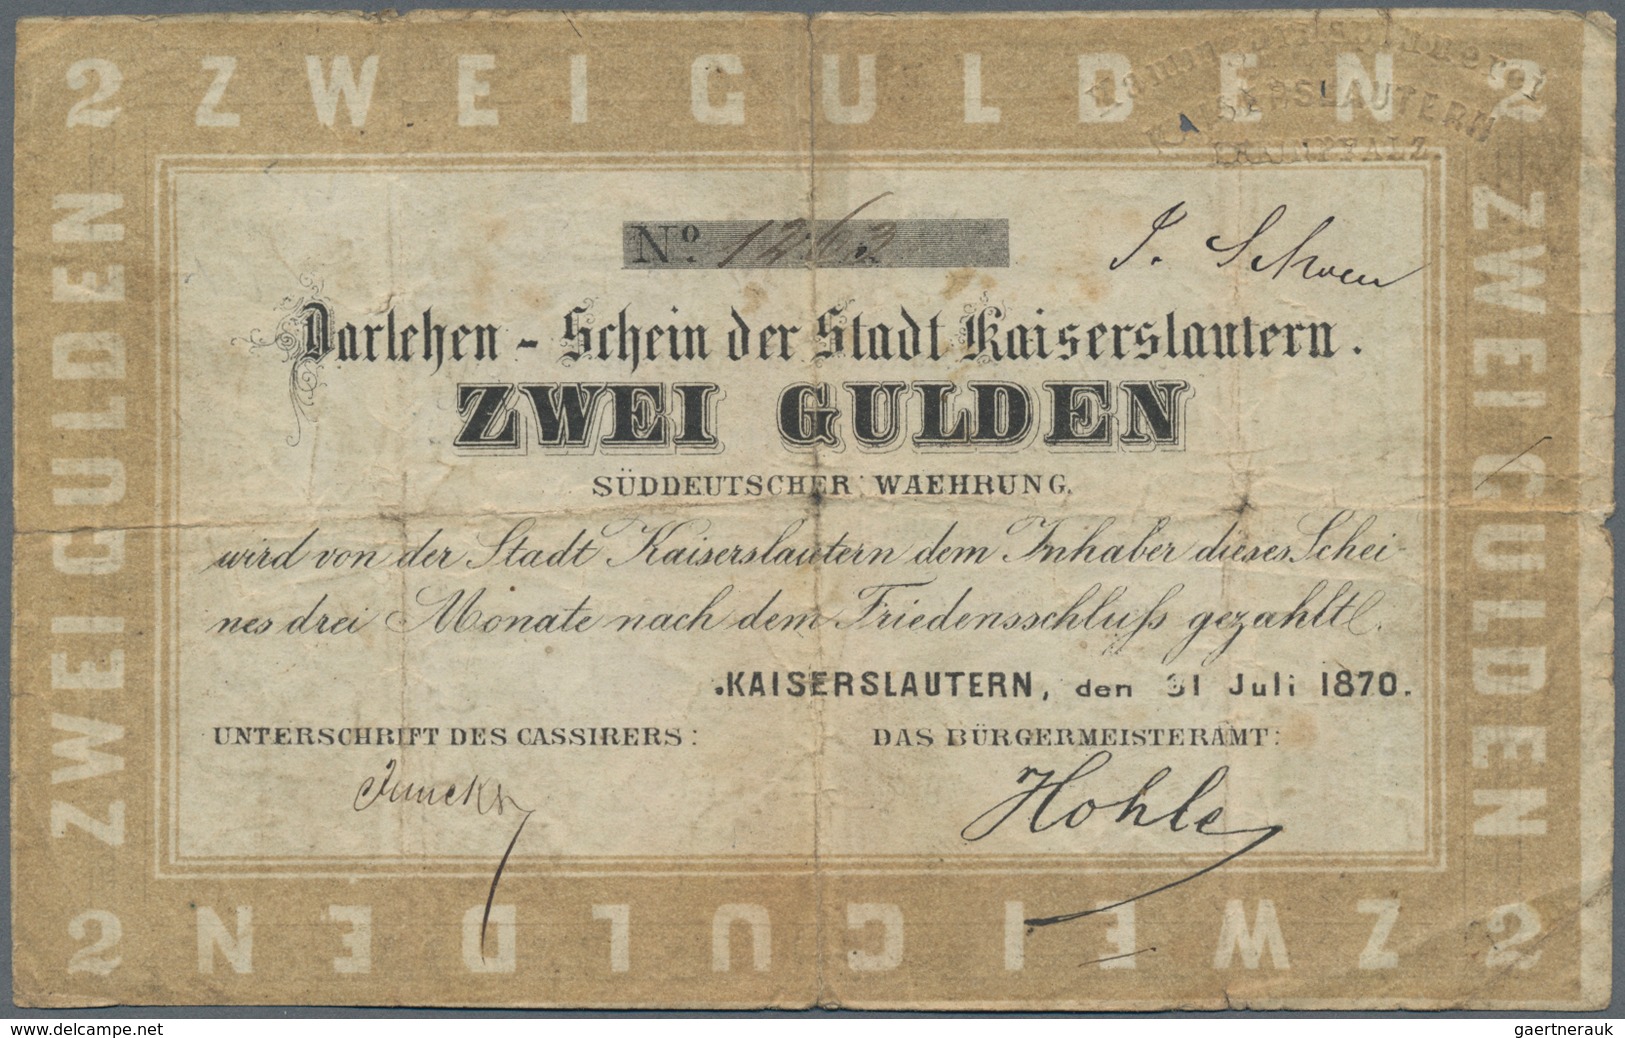 2 ZWEI GULDEN 2
Kammgarnspinnerei
KAISERSLAUTERN
RHEINPFALZ.
ZWEI GULDEN
ZWEI GULDEN
No. 1263
Darlehen - Schein der Stadt Kaiserslautern.
ZWEI GULDEN
SÜDDEUTSCHER WAEHRUNG.
wird von der Stadt Kaiserslautern dem Inhaber dieses Schei-
nes drei Monate nach dem Friedensschluß gezahlt.
KAISERSLAUTERN, den 31 Juli 1870.
UNTERSCHRIFT DES CASSIRERS:
DAS BÜRGERMEISTERAMT:
Hohle
2 ZWEI GULDEN 2
www.delcampe.net
gaertnerauk